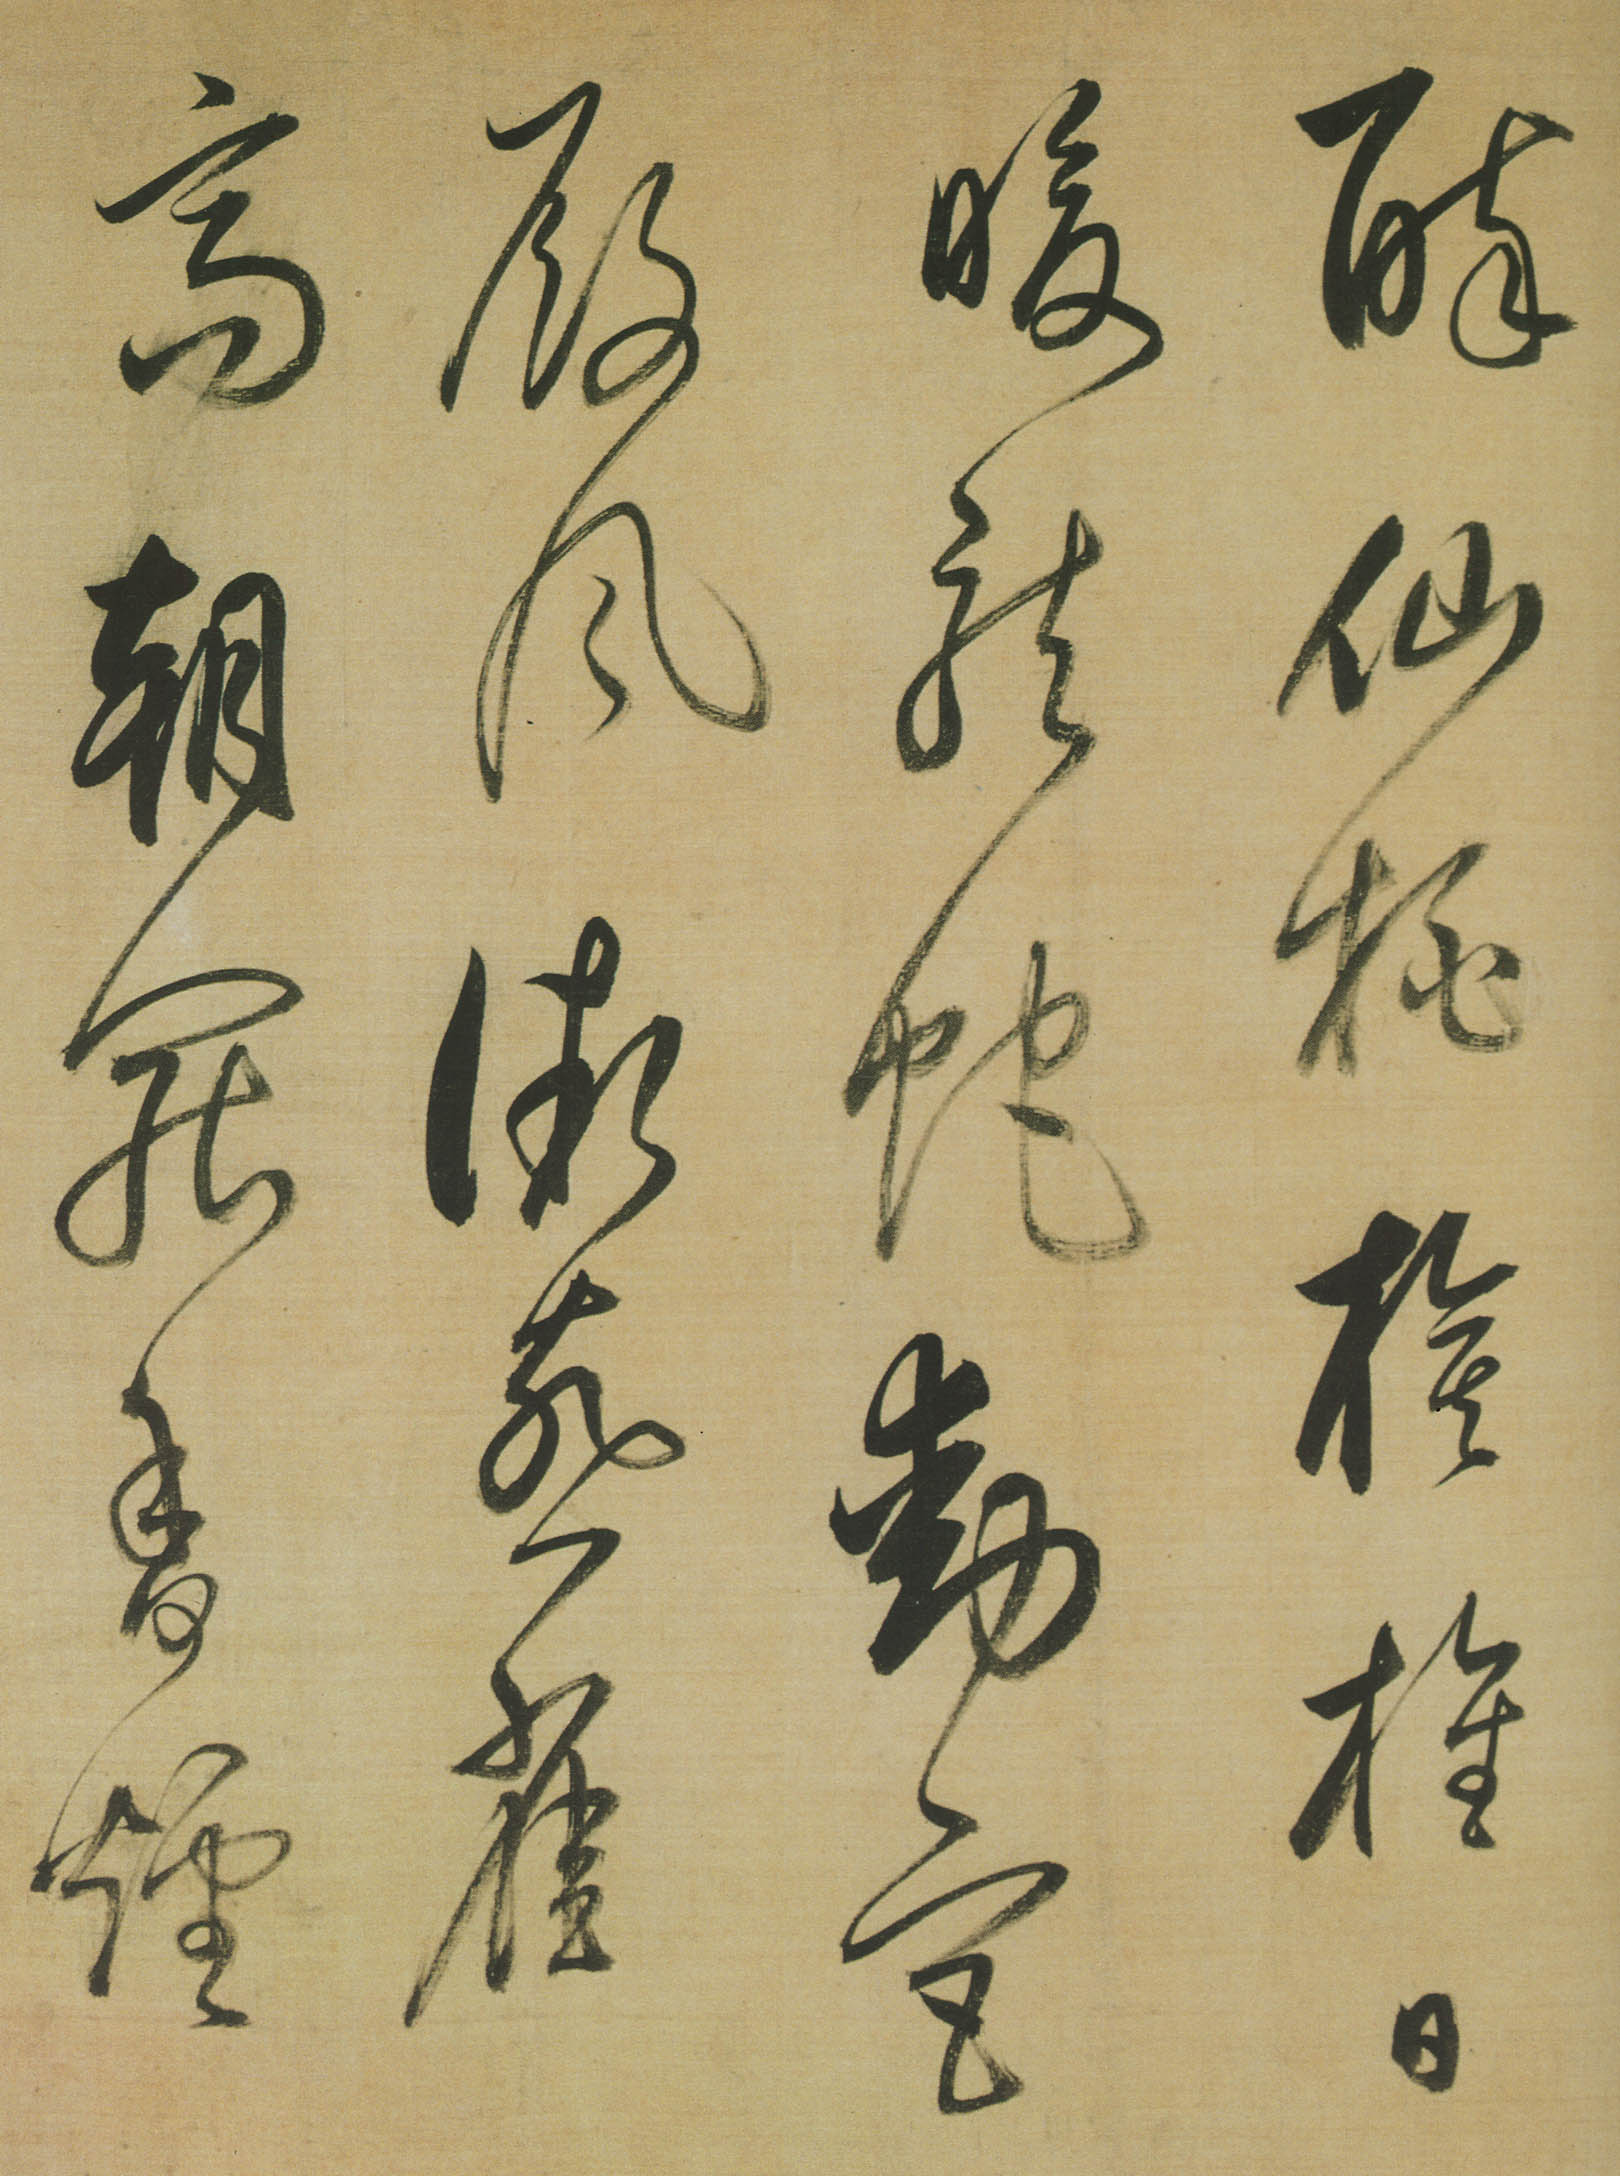 醉仙桃旗旌日
暖龍蛇動宮
殿風微燕雀
高朝罷香煙